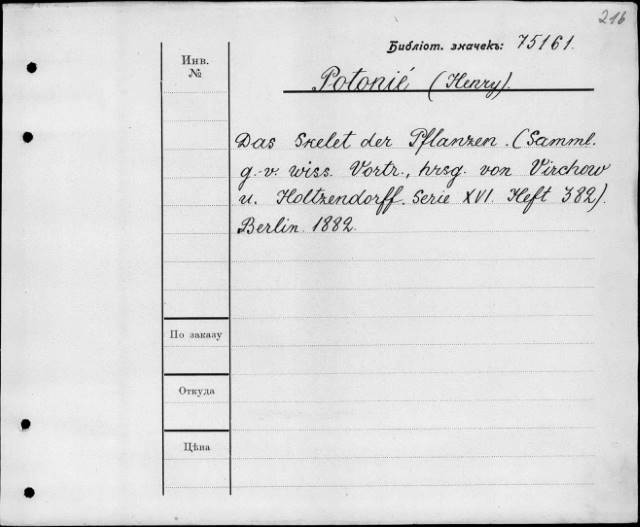 216
Библіот. значекъ: 75161.
Инв.
№
Potonié (Henry).
Das Skelet der Pflanzen. (Samml.
g.-v. wiss. Vortr., hrsg. von Virchow
u. Holtzendorff. Serie XVI. Heft 382).
Berlin. 1882.
По заказу
Откуда
Цѣна